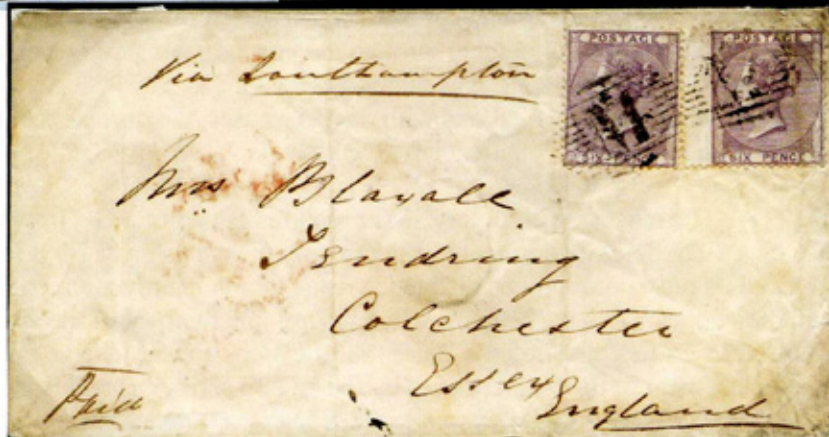 Via Southampton
POSTAGE
SIX PENCE
POSTAGE
SIX PENCE
Mrs Blaxall
Tendring
Colchester
Essex
England
Paid